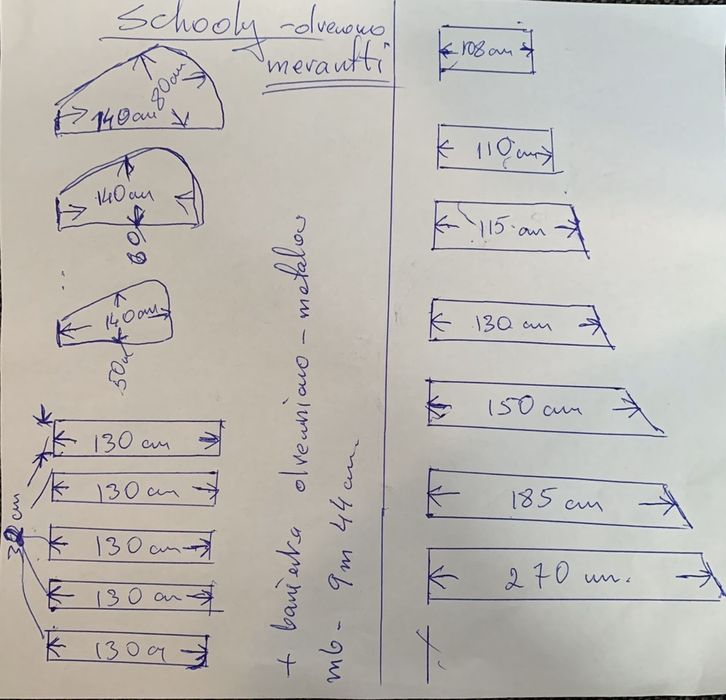 Schody - drewno
merantti
80 cm
140 cm
140 cm
60
140 cm
50 c
130 cm
130 cm
130 cm
130 cm
130 c
+ barierka drewniano - metalow
mb - 9 m 44 cm.
108 cm
110 cm
115 cm
130 cm
150 cm
185 cm
270 cm.